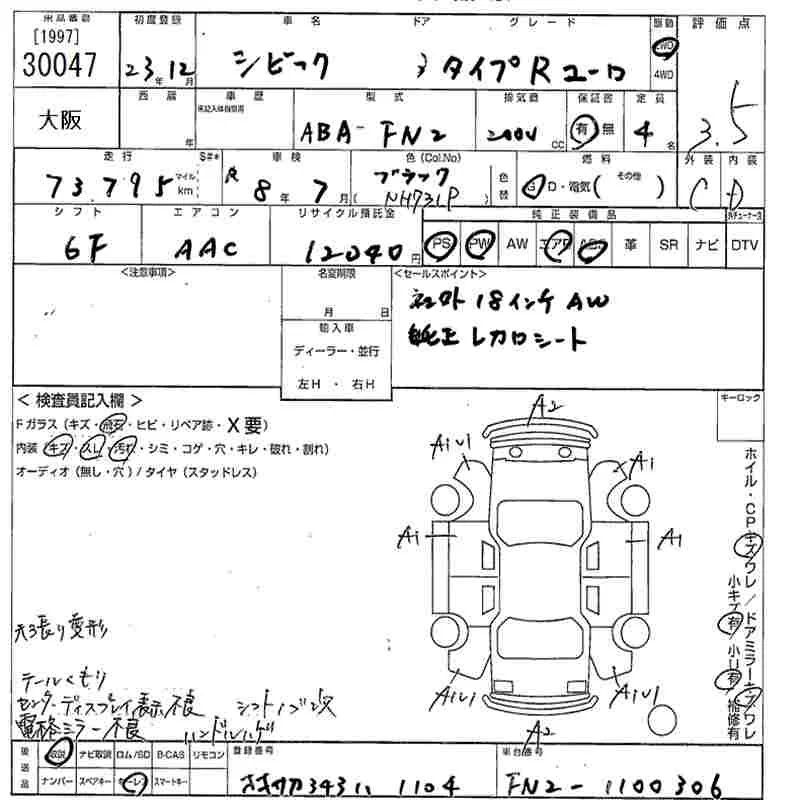 出品番号 初度登録 車名 ドア グレード 駆動 評価点
[1997]
30047 23年12月 シビック 3 タイプR ユーロ 2WD 4WD 3.5
大阪 西暦 年 車歴 未記入は自家用 型式 排気量 保証書 定員
ABA-FN2 2000 cc 有 無 4名
走行 S#* 車検 色(Col.No) 燃料 外装 内装
73,795 マイル km 8年7月 ブラック (NH731P) 色替 G・D・電気( その他 ) C D
シフト エアコン リサイクル預託金 純正装備品
6F AAC 12040円 PS PW AW エアB ABS 革 SR ナビ DTV
<注意事項> 名変期限 <セールスポイント>
月 日 社外18インチAW
輸入車 純正レカロシート
ディーラー・並行
左H ・ 右H
キーロック
<検査員記入欄>
Fガラス(キズ・飛石・ヒビ・リペア跡・X要)
内装(キズ・スレ・汚れ・シミ・コゲ・穴・キレ・破れ・割れ)
オーディオ(無し・穴)/タイヤ(スタッドレス)
A2
A1U1 A1
A1 A1
A1U1 A1U1
A2
ホイル・CPキズワレ/ドアミラーキズワレ
小キズ有 小U有 補修有
天張り変形
テールくもり
センターディスプレイ表示不良 シフトノブ欠
電格ミラー不良 ハンドルハゲ
後送品 取説 ナビ取説 ロム/SD B-CAS リモコン 登録番号 車台番号
ナンバー スペアキー キーレス スマートキー 1104 FN2-1100306